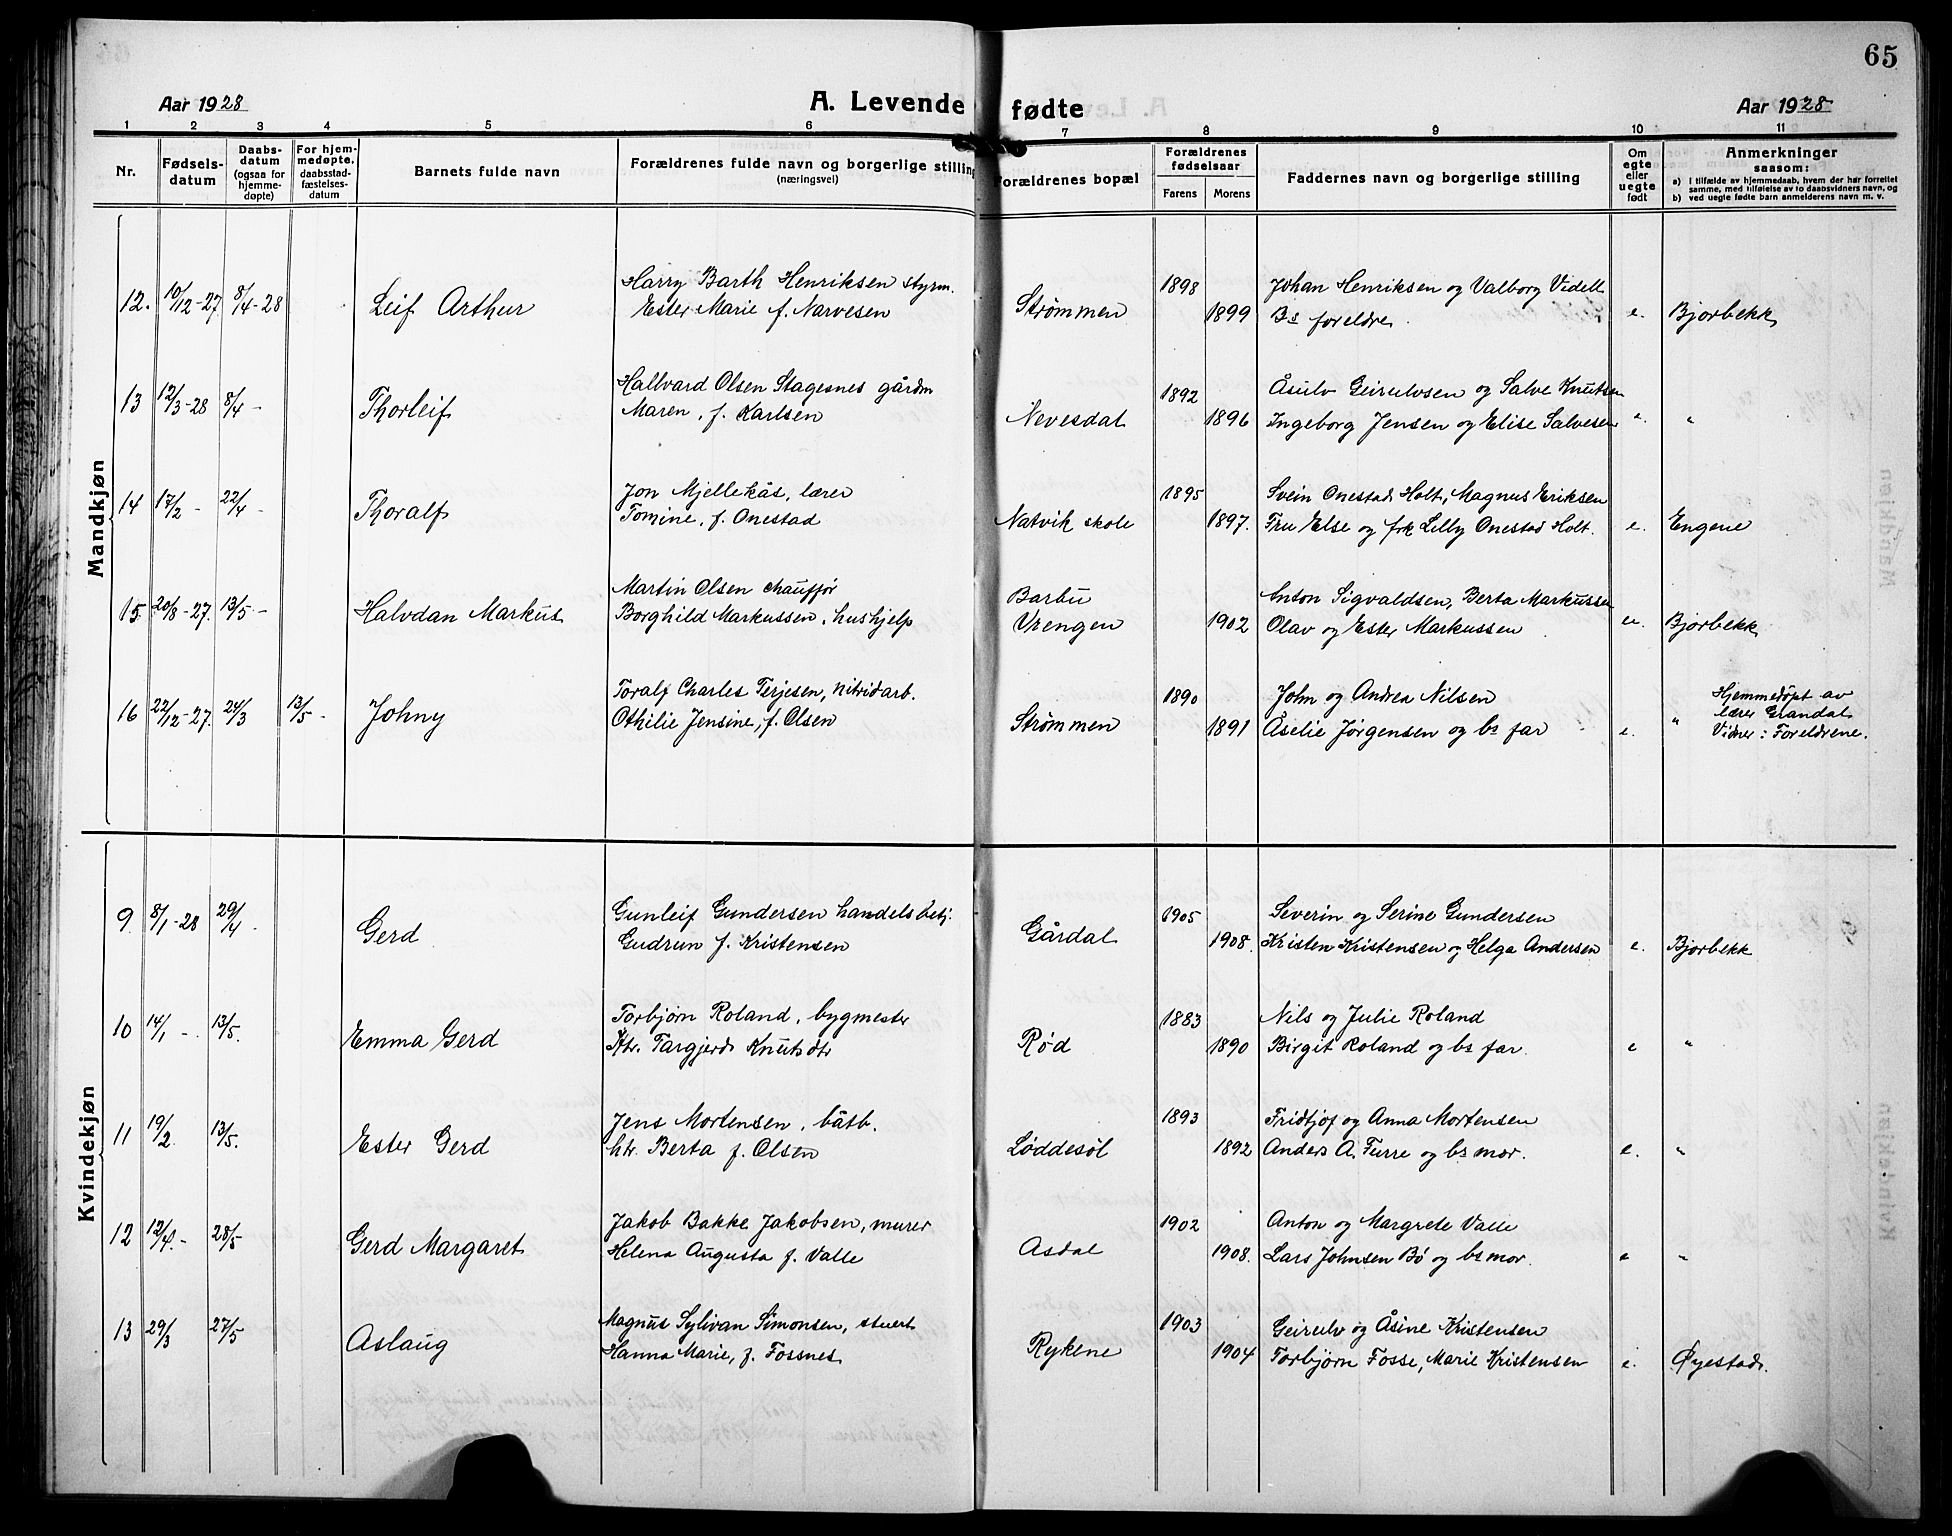 65
Aar 1928
A. Levende fødte
Aar 1928
1 2 3 4 5 6 7 8 9 10 11
Nr.
Fødsels-
datum
Daabs-
datum
(ogsaa for
hjemme-
døpte)
For hjem-
medøpte,
daabsstad-
fæstelses-
datum
Barnets fulde navn
Forældrenes fulde navn og borgerlige stilling
(næringsvei)
Forældrenes bopæl
Forældrenes
fødselsaar
Farens Morens
Faddernes navn og borgerlige stilling
Om
egte
eller
uegte
født
Anmerkninger
saasom:
a) i tilfælde av hjemmedaab, hvem der har forrettet
samme, med tilføielse av to daabsvidners navn, og
b) ved uegte fødte barn anmelderens navn m. v.
Mandkjøn
Harry Barth Henriksen styrm. 1898 Johan Henriksen og Valborg Videll
12. 10/12-27 8/4-28 Leif Arthur Ester Marie f. Narvesen Strømmen 1899 Bs foreldre. e. Bjorbekk
Hallvard Olsen Stagesnes gårdm 1892 Åsulv Geirulvsen og Salve Knutsen
13 12/3-28 8/4 - Thorleif Maren, f. Karlsen Nevesdal 1896 Ingeborg Jensen og Elise Salvesen " "
Jon Mjellekås, lærer 1895 Svein Onestad Holt, Magnus Eriksen
14 17/2 - 22/4 - Thoralf Tomine, f. Onestad Natvik skole 1897. Fru Else og frk Lilly Onestad Holt. e. Engene
Martin Olsen chauffør Barbu Anton Sigvaldsen, Berta Markussen
15. 20/8-27. 13/5 - Halvdan Markus Borghild Markussen, hushjelp Vrengen 1902 Olav og Ester Markussen u. Bjorbekk
Toralf Charles Terjesen, nitridarb. 1890 John og Andrea Nilsen Hjemmedøpt av
16 22/12-27. 24/3 13/5 - Johny Othilie Jensine, f. Olsen Strømmen 1891 Åselie Jørgensen og bs far e. " lærer Grandal
Vidner: Foreldrene.
Kvindekjøn
Gunleif Gundersen handelsbetj. 1905 Severin og Serine Gundersen
9 8/1-28 29/4 - Gerd Gudrun f. Kristensen Gårdal 1908. Kristen Kristensen og Helga Andersen e. Bjorbekk
Torbjørn Roland, bygmester 1883 Nils og Julie Roland
10 14/1 - 13/5. Emma Gerd Htr. Targjerd Knutsdtr Rød 1890 Birgit Roland og bs far. e "
Jens Mortensen, båtb. 1893 Fridtjof og Anna Mortensen
11 19/2. 13/5. Ester Gerd htr. Berta f. Olsen Løddesøl 1892 Anders A. Furre og bs mor. e. "
Jakob Bakke Jakobsen, murer 1902 Anton og Margrete Valle
12 12/4. - 28/5 Gerd Margaret Helena Augusta f. Valle Asdal 1908. Lars Johnsen Bø og bs mor. e "
Magnus Sylivan Simonsen, stuert 1903 Geirulv og Åsine Kristensen
13 29/3 27/5 Aslaug Hanna Marie, f. Fossnes Rykene 1904 Torbjørn Fosse, Marie Kristensen e. Øyestad.